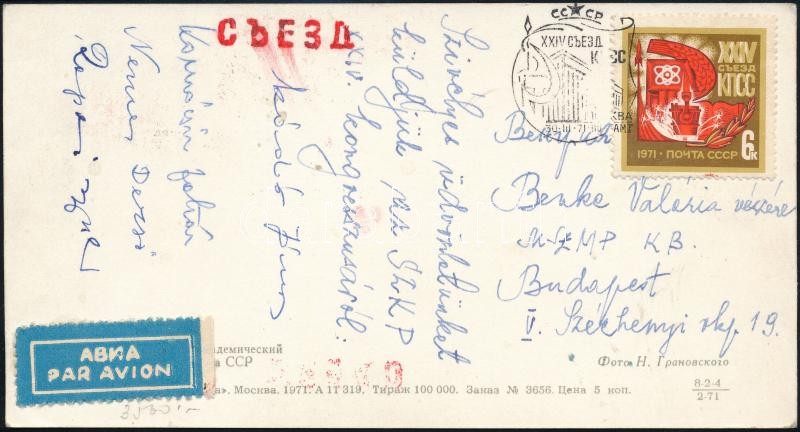 СЪЕЗД
Szívélyes üdvözletünket
küldjük az SzKP
XXIV. kongresszusáról:
Kádár János
Nemes Dezső
СССР
XXIV СЪЕЗД
КПСС
30-III-71
XXIV
СЪЕЗД
КПСС
6к
1971 · ПОЧТА СССР
Benke Valéria részére
MSZMP KB.
Budapest
V. Széchenyi rkp. 19.
АВИА
PAR AVION
адемический
ССР
Фото Н. Грановского
Москва. 1971. А 11319. Тираж 100 000. Заказ № 3656. Цена 5 коп.
8-2-4
2-71